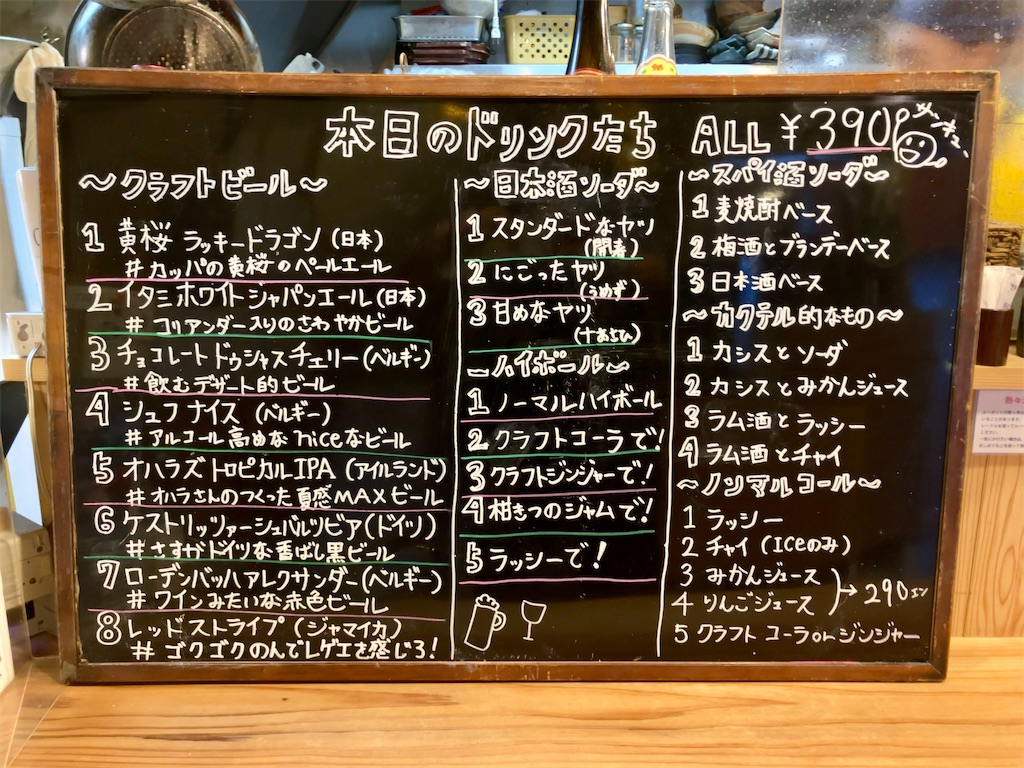 本日のドリンクたち ALL ¥390
サンキュー
～クラフトビール～
1 黄桜 ラッキードラゴン (日本)
#カッパの黄桜のペールエール
2 イタミホワイトジャパンエール (日本)
# コリアンダー入りのさわやかビール
3 チョコレートドゥシャスチェリー (ベルギー)
#飲むデザート的ビール
4 シュフ ナイス (ベルギー)
#アルコール高めなniceなビール
5 オハラズトロピカルIPA (アイルランド)
#オハラさんのつくった夏感MAXビール
6 ケストリッツァーシュバルツビア (ドイツ)
#さすがドイツな香ばし黒ビール
7 ローデンバッハアレクサンダー (ベルギー)
# ワインみたいな赤色ビール
8 レッドストライプ (ジャマイカ)
# ゴクゴクのんでレゲエを感じろ!
～日本酒ソーダ～
1 スタンダードなヤツ
(開春)
2 にごったヤツ
(うめず)
3 甘めなヤツ
～ハイボール～
1 ノーマルハイボール
2 クラフトコーラで!
3 クラフトジンジャーで!
4 柑きつのジャムで!
5 ラッシーで!
～スパイ酒ソーダ～
1 麦焼酎ベース
2 梅酒とブランデーベース
3 日本酒ベース
～カクテル的なもの～
1 カシスとソーダ
2 カシスとみかんジュース
3 ラム酒とラッシー
4 ラム酒とチャイ
～ノンアルコール～
1 ラッシー
2 チャイ (Iceのみ)
3 みかんジュース
4 りんごジュース
→ 290エン
5 クラフト コーラorジンジャー